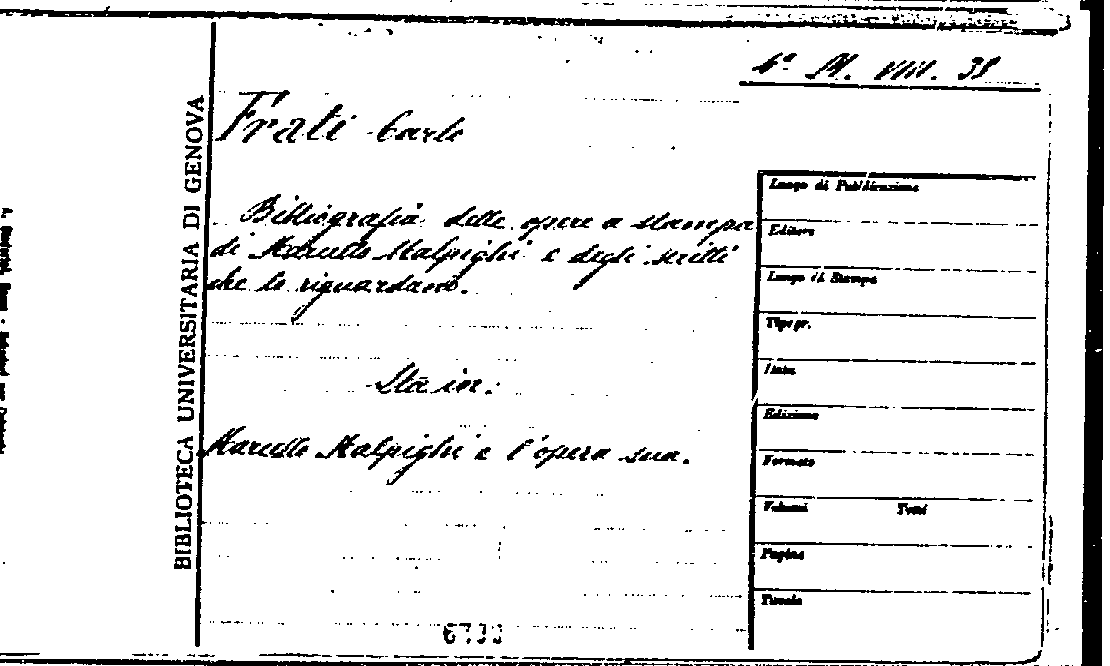 4ª M. VIII. 38
BIBLIOTECA UNIVERSITARIA DI GENOVA
Frati Carlo
Bibliografia delle opere a stampa
di Marcello Malpighi e degli scritti
che lo riguardano.
Sta in:
Marcello Malpighi e l'opera sua.
Luogo di Pubblicazione
Editore
Luogo di Stampa
Tipogr.
Data
Edizione
Formato
Volumi Tomi
Pagine
Tavole